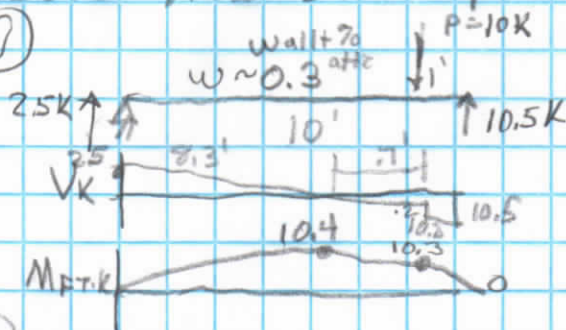 1
P=10K
wall+%
attic
w~0.3
1'
2.5K
10'
10.5K
2.5
8.3'
.7'
VK
.2
10.2
10.5
10.4
10.3
MFT.K
0